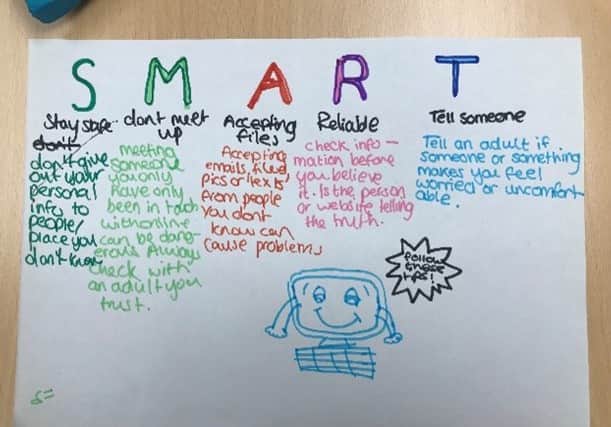 S M A R T
Stay safe
don't
don't give
out your
personal
info to
people/
place you
don't know
dont meet
up
meeting
someone
you only
have only
been in touch
with online
can be dang-
erous Always
check with
an adult you
trust.
Accepting
files
Accepting
emails, files,
pics or texts
from people
you dont
know can
cause problems
Reliable
check info-
mation before
you believe
it. Is the person
or website telling
the truth.
Tell someone
Tell an adult if
someone or something
makes you feel
worried or uncomfort
able.
follow
these
tips!